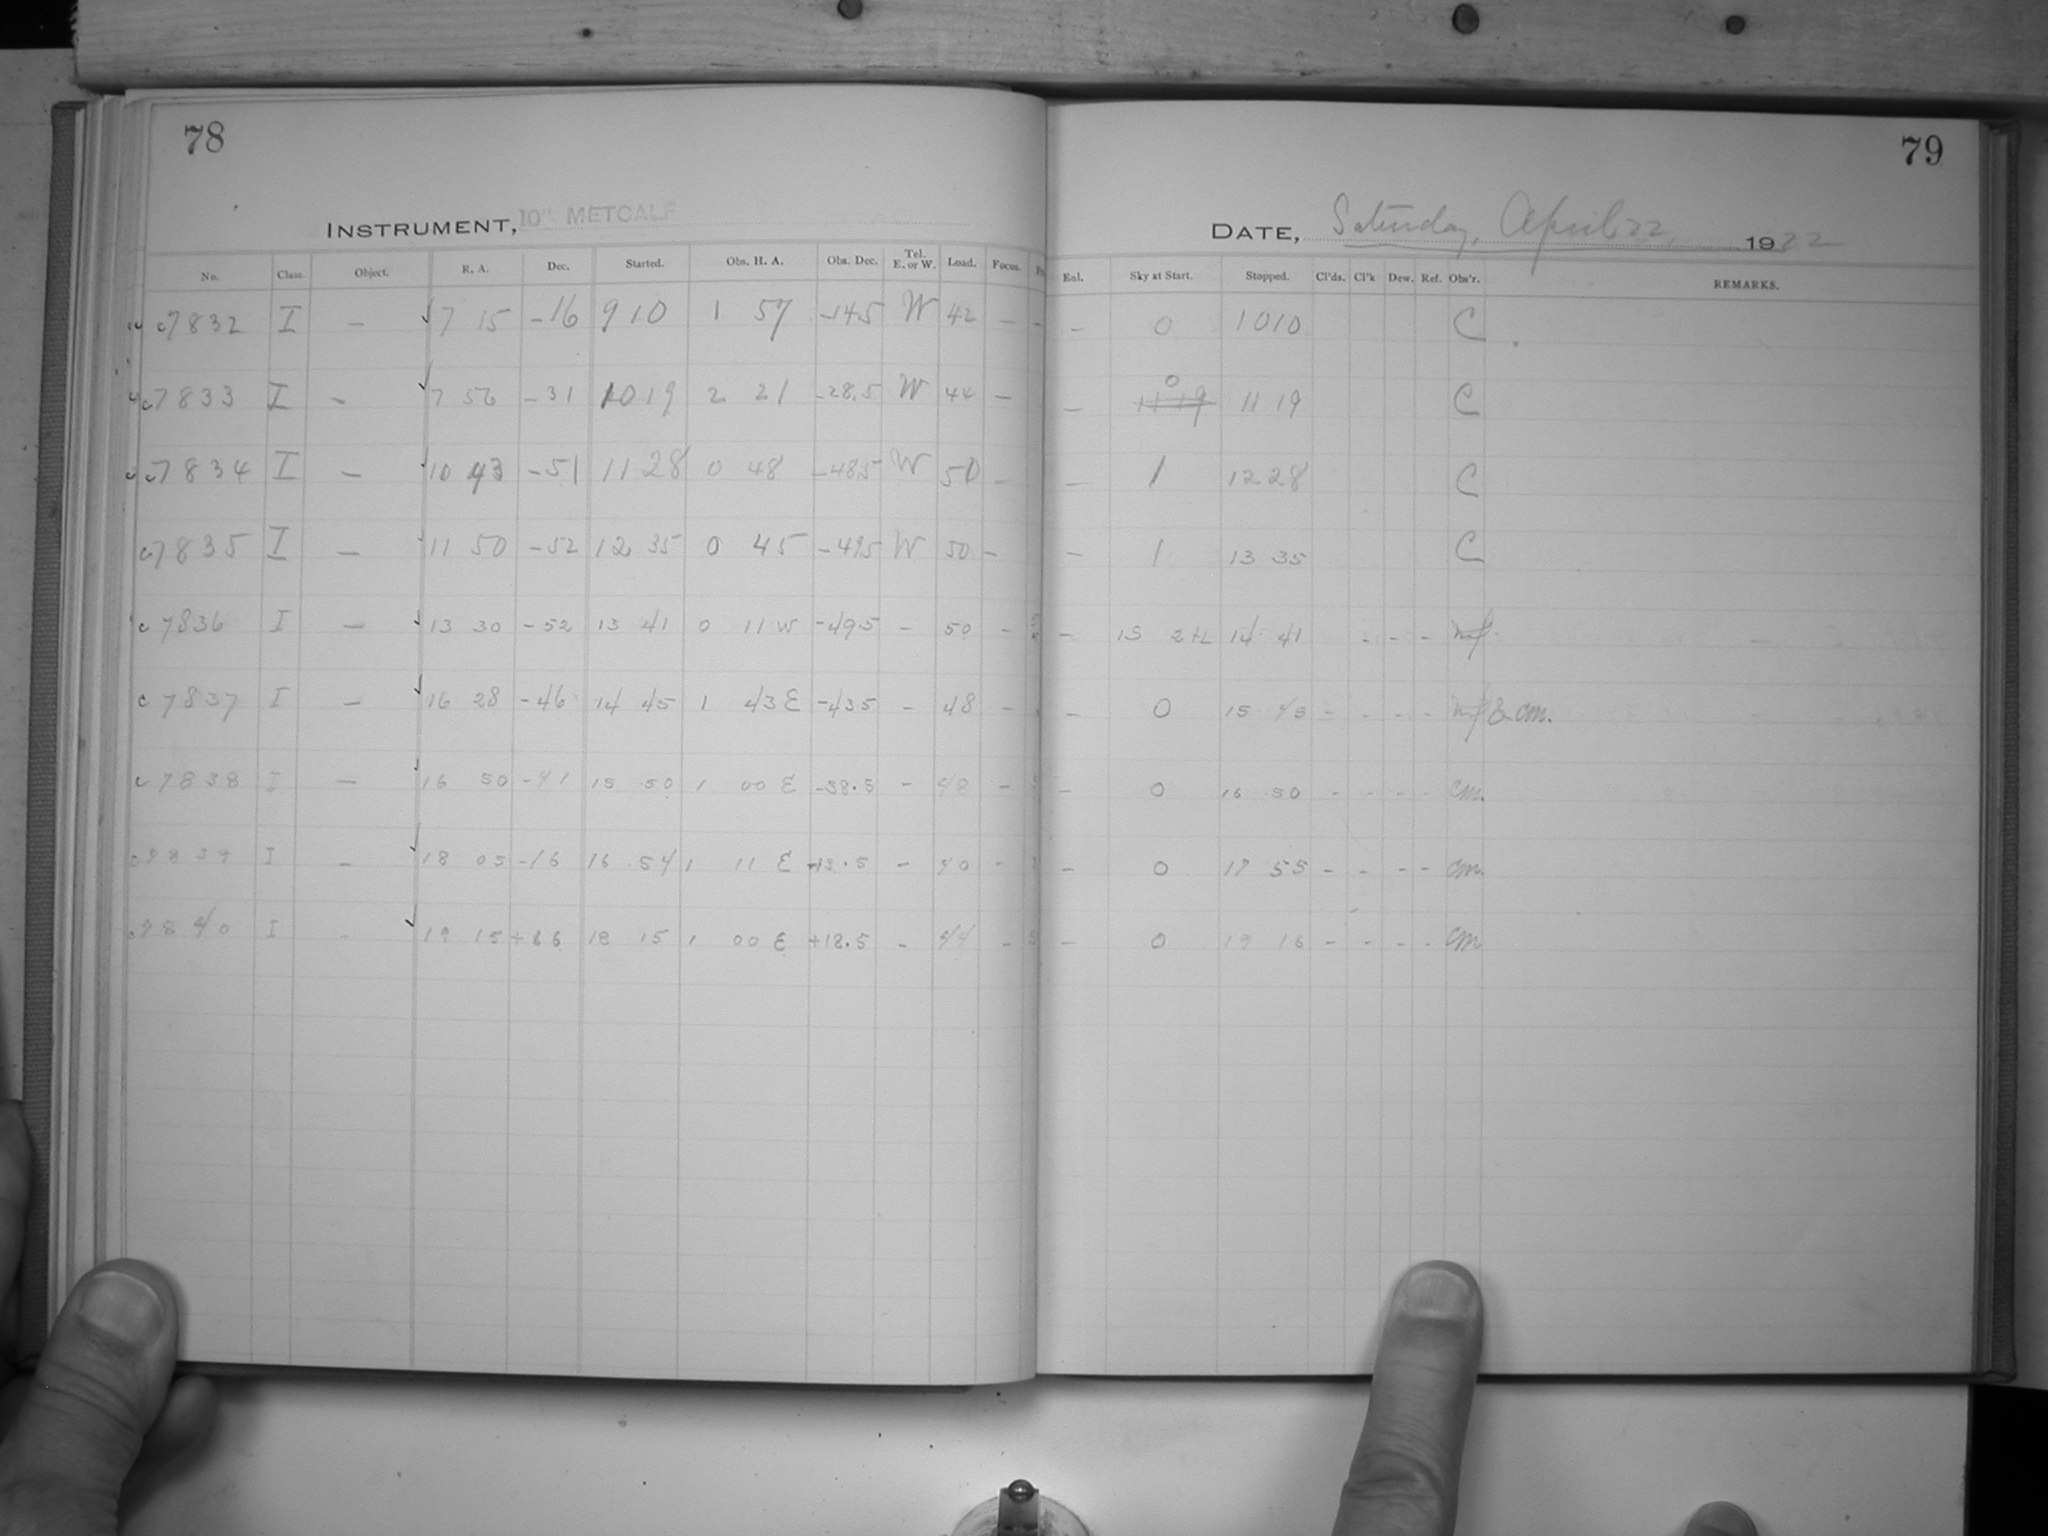 78
79
INSTRUMENT, 10" METCALF
DATE, Saturday, April 22, 1922
No. Class. Object. R. A. Dec. Started. Obs. H. A. Obs. Dec. Tel. E. or W. Load. Focus.
Eal. Sky at Start. Stopped. Cl'ds. Cl'k Dew. Ref. Obs'r. REMARKS.
c7832 I – 7 15 -16 9 10 1 57 -14.5 W 42 – – – 0 10 10 C
c7833 I – 7 56 -31 10 19 2 21 -28.5 W 44 – – 0 11 19 11 19 C
c7834 I – 10 43 -51 11 28 0 48 -48.5 W 50 – – 1 12 28 C
c7835 I – 11 50 -52 12 35 0 45 -49.5 W 50 – – 1 13 35 C
c7836 I – 13 30 -52 13 41 0 11 W -49.5 – 50 – – 14 41 - - -
c7837 I – 16 28 -46 14 45 1 43 E -43.5 – 48 – – 0 15 45 - - - - & cm.
c7838 I – 16 50 -41 15 50 1 00 E -38.5 – 48 – – 0 16 50 - - - - cm.
c7839 I – 18 05 -16 16 54 1 11 E -13.5 – 40 – – 0 17 55 - - - - cm.
c7840 I – 19 15 18 15 1 00 E +18.5 – 44 – – 0 19 16 - - - - cm